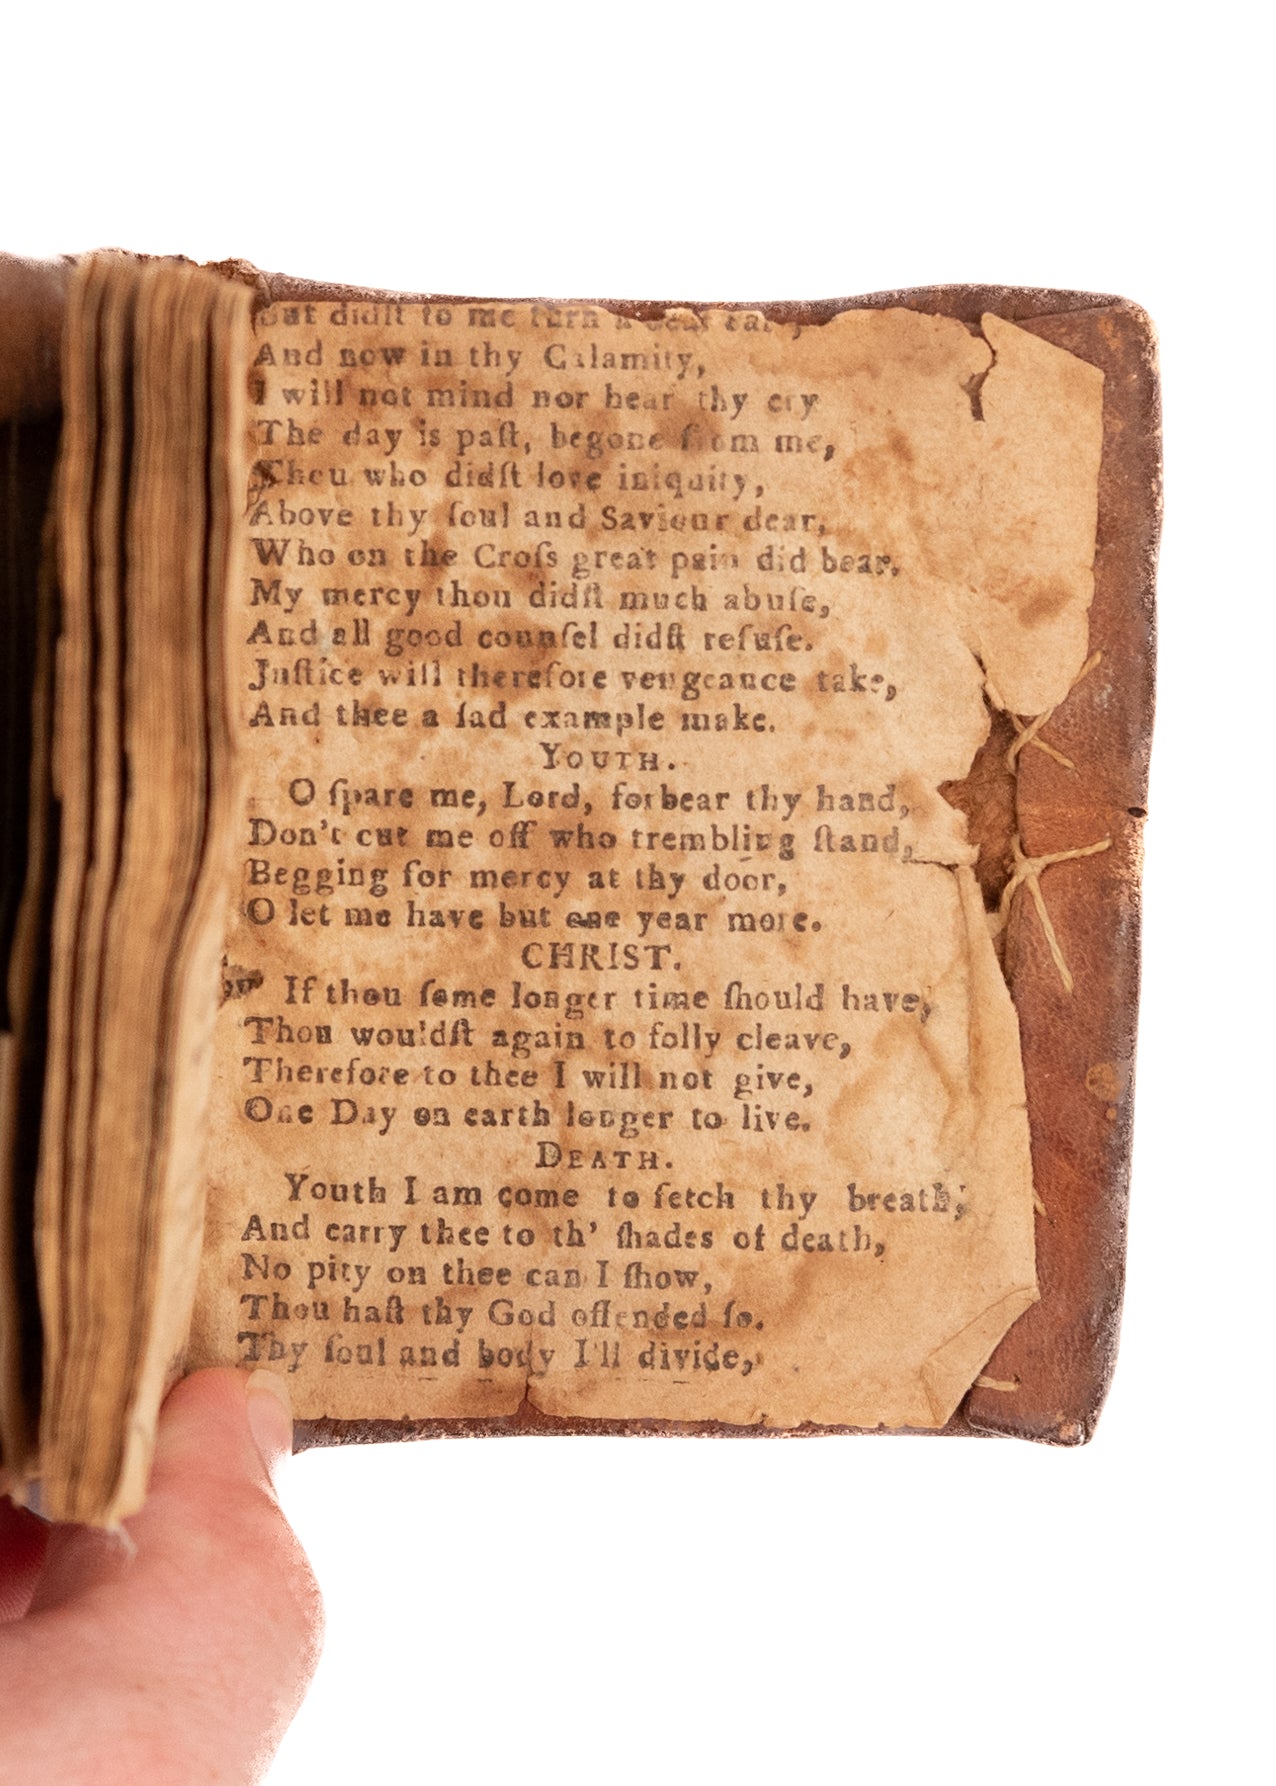 But didſt to me turn a deaf ear,
And now in thy Calamity,
I will not mind nor hear thy cry
The day is paſt, begone from me,
Thou who didſt love iniquity,
Above thy ſoul and Saviour dear,
Who on the Croſs great pain did bear.
My mercy thou didſt much abuſe,
And all good counſel didſt refuſe.
Juſtice will therefore vengeance take,
And thee a ſad example make.
YOUTH.
O ſpare me, Lord, forbear thy hand,
Don't cut me off who trembling ſtand,
Begging for mercy at thy door,
O let me have but one year more.
CHRIST.
If thou ſome longer time ſhould have,
Thou wouldſt again to folly cleave,
Therefore to thee I will not give,
One Day on earth longer to live.
DEATH.
Youth I am come to fetch thy breath,
And carry thee to th' ſhades of death,
No pity on thee can I ſhow,
Thou haſt thy God offended ſo.
Thy ſoul and body I'll divide,